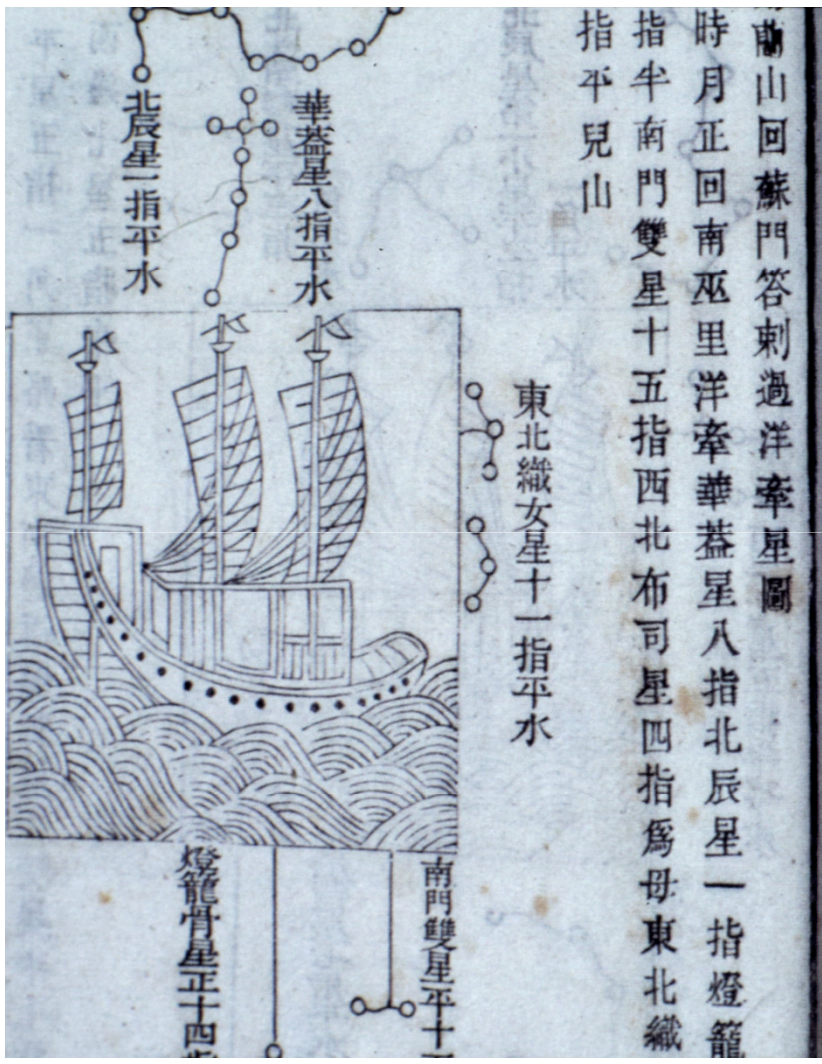 蘭山回蘇門答剌過洋牽星圖
時月正回南巫里洋牽華蓋星八指北辰星一指燈籠
指半南門雙星十五指西北布司星四指爲母東北織
指平兒山
東北織女星十一指平水
華蓋星八指平水
北辰星一指平水
南門雙星平十
燈籠骨星正十四指